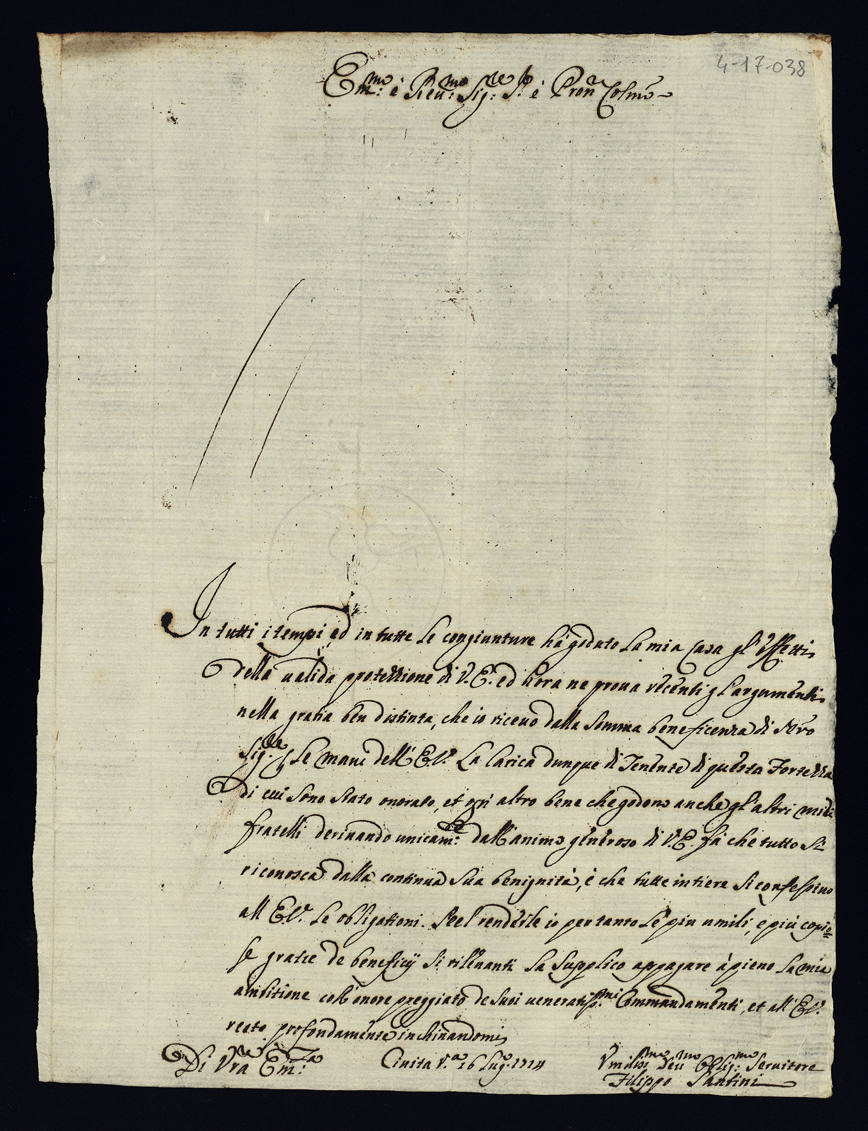 4-17-038
Em.mo e Reu.mo Sig.re P.re e Pron Colmo
In tutti i tempi, ed in tutte le congiunture há goduto la mia Casa gl'effetti
della ualida protettione di V.E. ed hora ne proua recenti gl'argumenti
nella gratia ben distinta, che io riceuo dalla somma beneficenza di Nro
Sig.re p le mani dell'E.V. La Carica dunque di Tenente di questa Fortezza
di cui sono stato onorato, et ogni altro bene che godono anche gl'altri miei
fratelli deriuando unicam.te dall'animo generoso di V.E. fá che tutto si
riconosca dalla continua sua benignità, e che tutte intiere si confessino
all'E.V. le obligationi. Nel renderle io per tanto le piu umili, e più copio-
se gratie de beneficij si rileuanti la supplico appagare à pieno la mia
ambitione coll'onore preggiato de suoiueneratis.mi Commandamenti, et all'E.V.
resto profondamente inchinandomi
Di Vra Em.za
Ciuita V.a 16 Lug.o 1714
Vmilis.mo Deu.mo Oblig.mo Seruitore
Filippo Santini